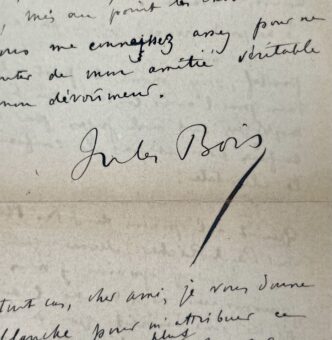 , mis au point les
vous me connaissez assez pour ne
douter de mon amitié véritable
mon dévouement.
Jules Bois
tout cas, cher ami, je vous donne
blanche pour m'attribuer ce
plus